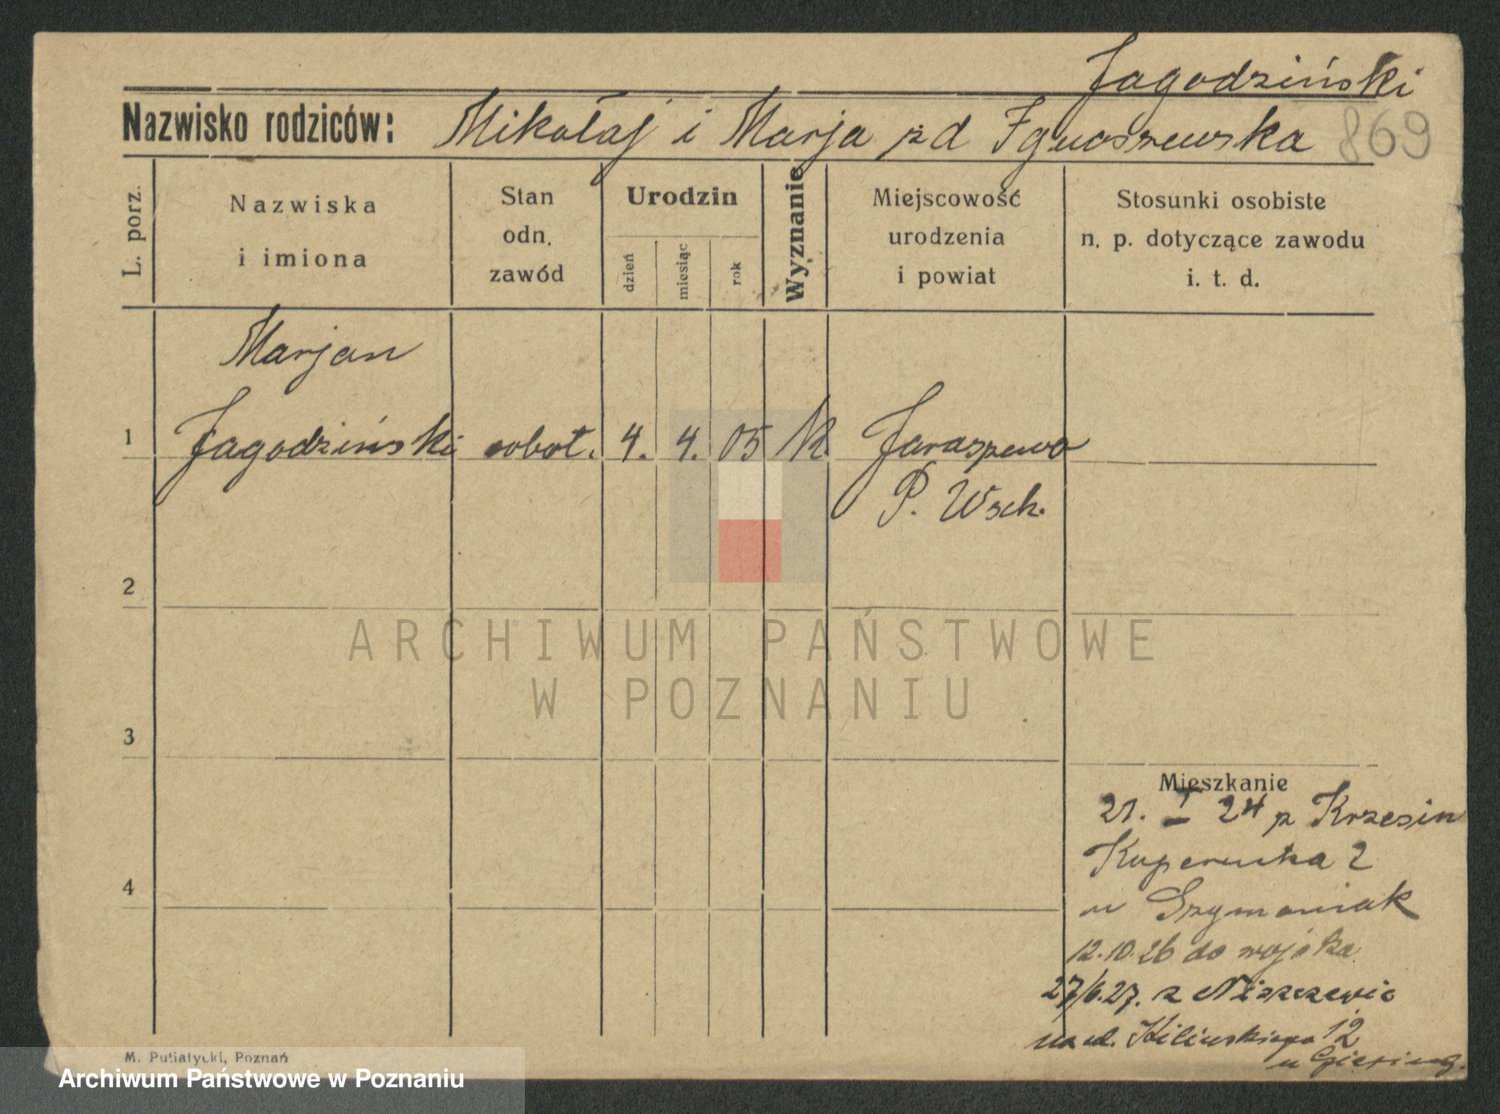 Jagodziński
Nazwisko rodziców: Mikołaj i Marja zd 869
L. porz.
Nazwiska
i imiona
Stan
odn.
zawód
Urodzin
dzień
miesiąc
rok
Wyznanie
Miejscowość
urodzenia
i powiat
Stosunki osobiste
n. p. dotyczące zawodu
i. t. d.
Marjan
1 Jagodziński robot. 4. 4. 05 K
P. Wsch.
2
ARCHIWUM PAŃSTWOWE
W POZNANIU
3
Mieszkanie
21. I 24 z Krzesin
2
4
u Szymaniak
12.10.26 do wojska
27/6.27. z
na ul. Kilińskiego 12
u
M. Putiatycki, Poznań
Archiwum Państwowe w Poznaniu